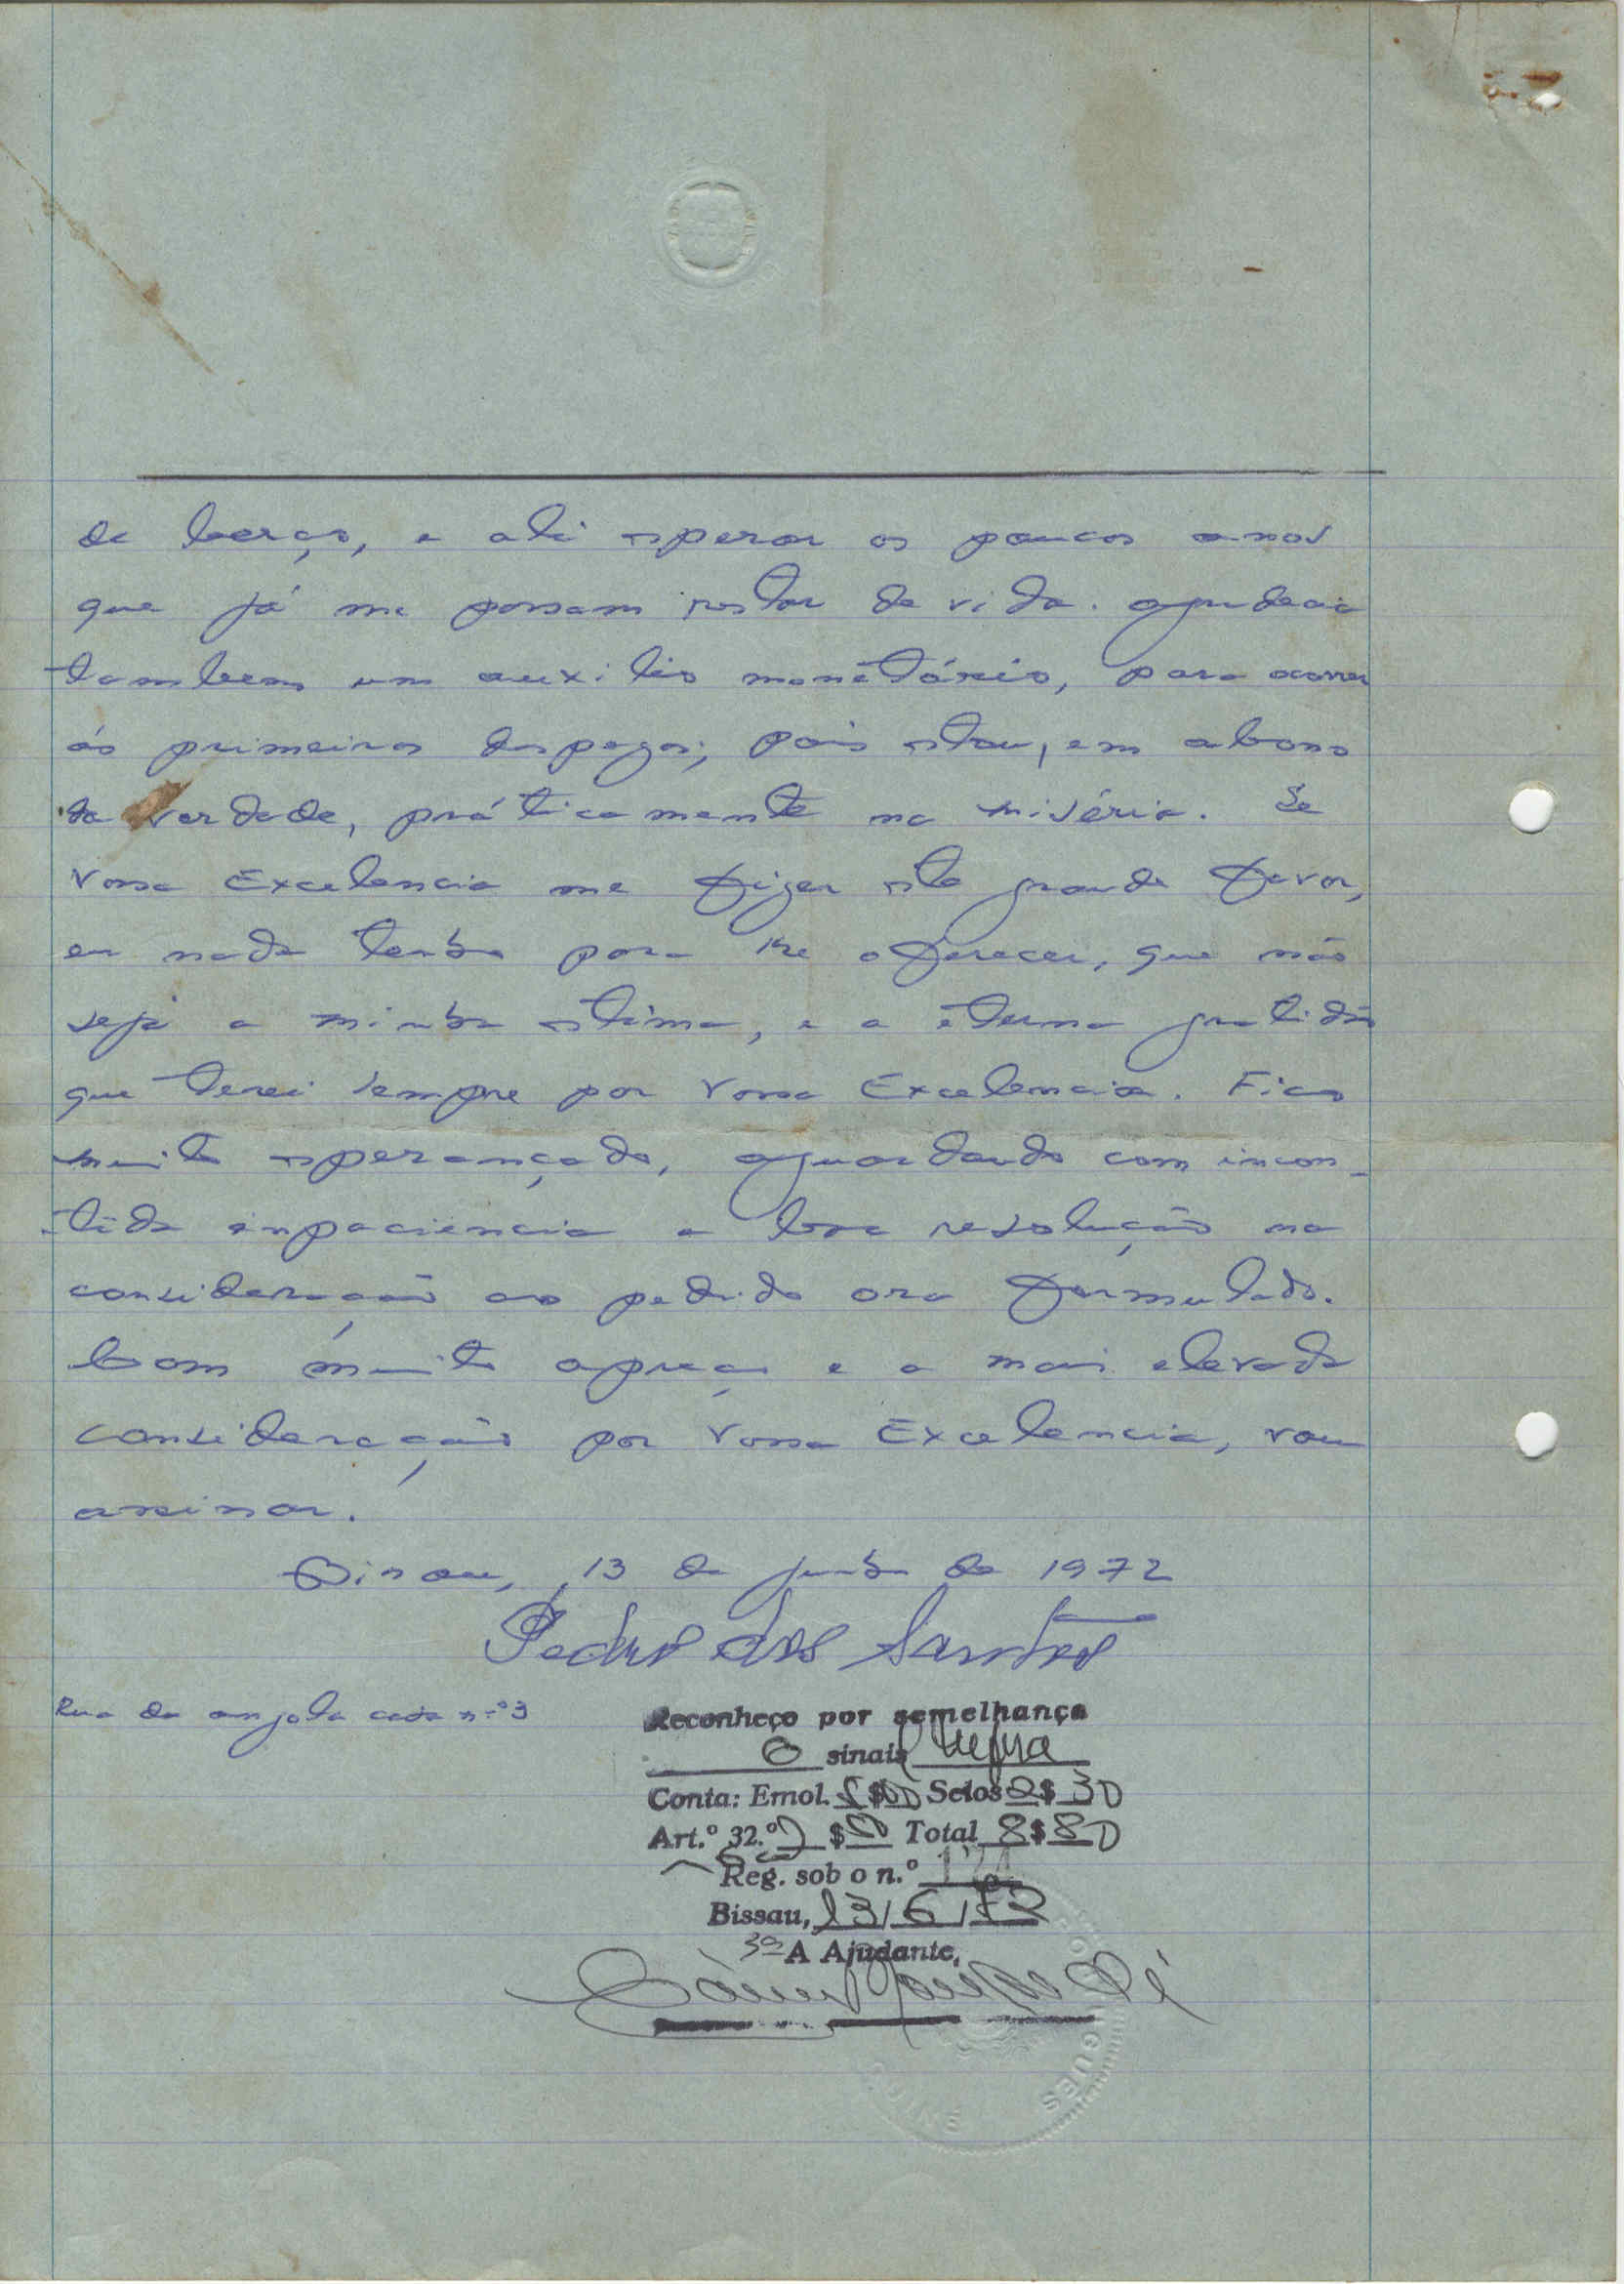 de berço, e ali esperar os poucos anos
que já me possam restar de vida. agradecia
tambem um auxilio monetário, para ocorrer
ás primeiras despezas; pois estou, em abono
da verdade, práticamente na miséria. Se
Vossa Excelencia me fizer este grande favor,
eu nada tenho para lhe oferecer, que não
seja a minha estima, e a eterna gratidão
que terei sempre por Vossa Excelencia. Fico
muito esperançado, aguardando com incon-
tida inpaciencia a boa resolução na
consideração ao pedido ora formulado.
Com muito apreço e a mais elevada
consideração por Vossa Excelencia, vou
assinar.
Bissau, 13 de junho de 1972
Pedro dos Santos
Rua de angola casa n.º 3
Reconheço por semelhança
O sinais
Conta: Emol. $ Selos 2$30
Art.º 32.º $ Total 8$80
Reg. sob o n.º
Bissau, 13/6/72
3ª A Ajudante,
GUINÉ
GUES